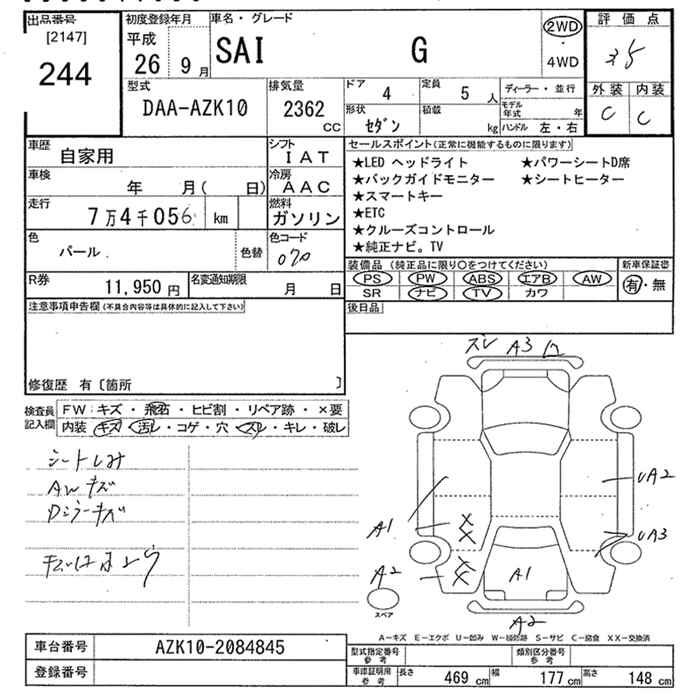 出品番号 初度登録年月 車名・グレード 評価点
[2147] 平成 2WD
244 26 9月 SAI G 4WD 3.5
型式 排気量 ドア 4 定員 5 人 ディーラー・並行 外装 内装
DAA-AZK10 2362 cc 形状 セダン 積載 kg モデル年式 年 C C
ハンドル 左・右
車歴 自家用 シフト IAT セールスポイント(正常に機能するものに限ります)
車検 年 月( 日) 冷房 AAC ★LED ヘッドライト ★パワーシートD席
★バックガイドモニター ★シートヒーター
走行 7万4千056 km 燃料 ガソリン ★スマートキー
★ETC
色 パール 色替 色コード 070 ★クルーズコントロール
★純正ナビ。TV
R券 11,950円 名変通知期限 月 日 装備品(純正品に限り〇をつけてください) 新車保証書
PS PW ABS エアB AW 有・無
SR ナビ TV カワ
注意事項申告欄(不具合内容等は具体的に記入して下さい) 後日品
修復歴 有〔箇所 〕
検査員記入欄 FW:キズ・飛石・ヒビ割・リペア跡・×要
内装 キズ・汚レ・コゲ・穴・スレ・キレ・破レ
ズレ A3
シートしみ
AWキズ
Dミラーキズ
UA2
A1 UA3
A2 A1
スペア A2
A-キズ E-エクボ U-凹み W-補修跡 S-サビ C-腐食 XX-交換済
車台番号 AZK10-2084845 型式指定番号 参考 類別区分番号 参考
登録番号 車庫証明用 参考 長さ 469 cm 幅 177 cm 高さ 148 cm